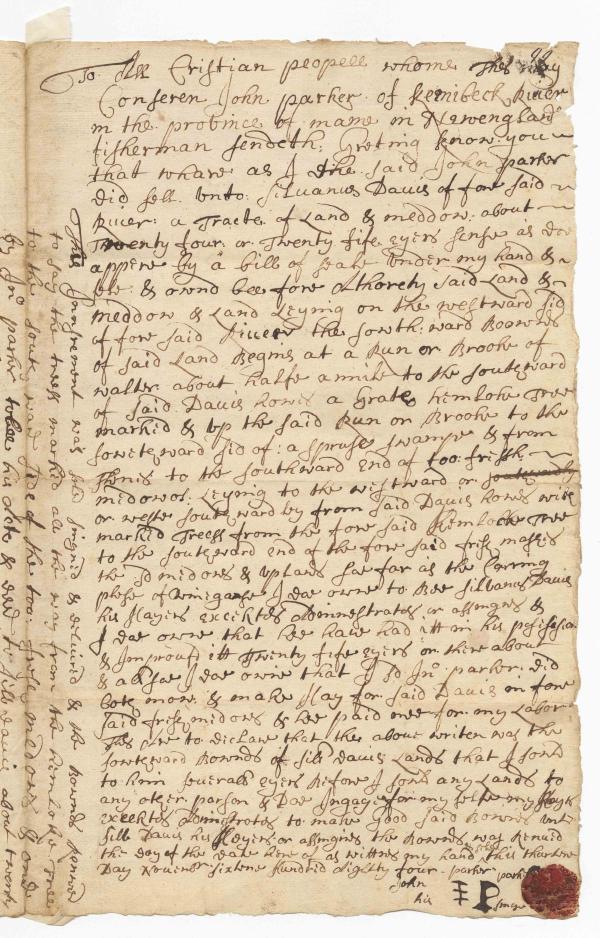 To All Cristian peopell whome This may
Conseren John parker of Kenibeck River
in the province of mame in Newengland
fisherman sendeth: Greting know you
that whare as I the said John Parker
did sell unto Silvanus Davis of fore said
River: a Tracte of Land & meddow: about
Twenty four: or Twenty fife eyers sense as doe
appere by a bill of seale under my hand &
& ownd bee fore Athorety said Land &
meddow & Land Leying on the westward sid
of fore said River the South: ward Boownds
of said Land Begins at a Run or Brooke of
watter about halfe a mile to the southward
of said Davis howes a Grate hemloke Tree
marked & up the said Run or Brooke to the
sowthward sid of: a spruse swampe & from
Thens to the southward end of too: fresh
midows: Leying to the westward or
or weste southward by from said Davis howes with
marked Treess from the fore said Hemlocke Tree
to the southward end of the fore said fresh
the sd midows & upland soe far as the Carring
plase of I doe owne to Bee Silvanus Davis
his Hayers Administrators or assignes &
I doe owne that hee have had itt in his posesion
& Improufd itt Twenty fife eyers or there about
& allsoe I doe owne that I sd Jno parker: did
bote mow: & make Hay for said Davis on fore
said fresh midows & hee paid mee for my Labor
This are to declare that the above writen was the
southward Bownds of Silv Davis Lands that I sould
to him severall eyers Before I sould any Lands to
any other parson & Doe Ingayge for my selfe my Hayers
Administrators to make Good said Bownds unto
Silv Davis his Hayers or assignes the Bownds was Renuid
the day of the date here of as witnes my hand this thurtene
Day November Sixtene Hundrid Eighty four parker
John
his
This Instrement was sined & delivrid & the Bownds Renued
to say the trees marked all the way from the hemloke Tree
to the southward sied of the too: fresh midows &
by Jno parker & did to Silv Davis about twenty